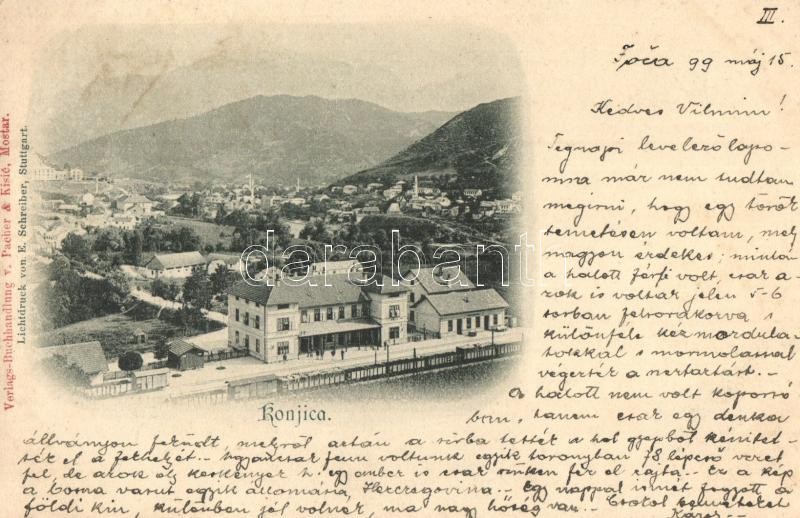 III.
Foča 99 máj 15.
Kedves Vilmim!
Tegnapi levelezőlapo-
mra már nem tudtam
megirni, hogy egy török
temetésen voltam, mely
nagyon érdekes; minta
a halott férfi volt, csar a
rok is voltar jelen 5-6
sorban felsorakorva s
különféle kézmordula-
tokkal s mormolással
végertér a szertartást.-
A halott nem volt koporsó
ban, hanem csar egy denka
állványon feküdt, melyről aztán a sirba tettér s hol gyepből készitet-
tér el a fekhelyét.- Ugyancsar fenn voltunk egyik toronyban 78 lépcső veret
fel, de arok oly keskenyer h. egy ember is csar
a Bosna vasut egyik állomása, Hercegovina.- Egy nappal ismét
földi kin, különben jól volner, ma nagy hőség van.- Csókol
Konjica.
Verlags-Buchhandlung v. Pacher & Kisić, Mostar.
Lichtdruck von E. Schreiber, Stuttgart.
darabanth